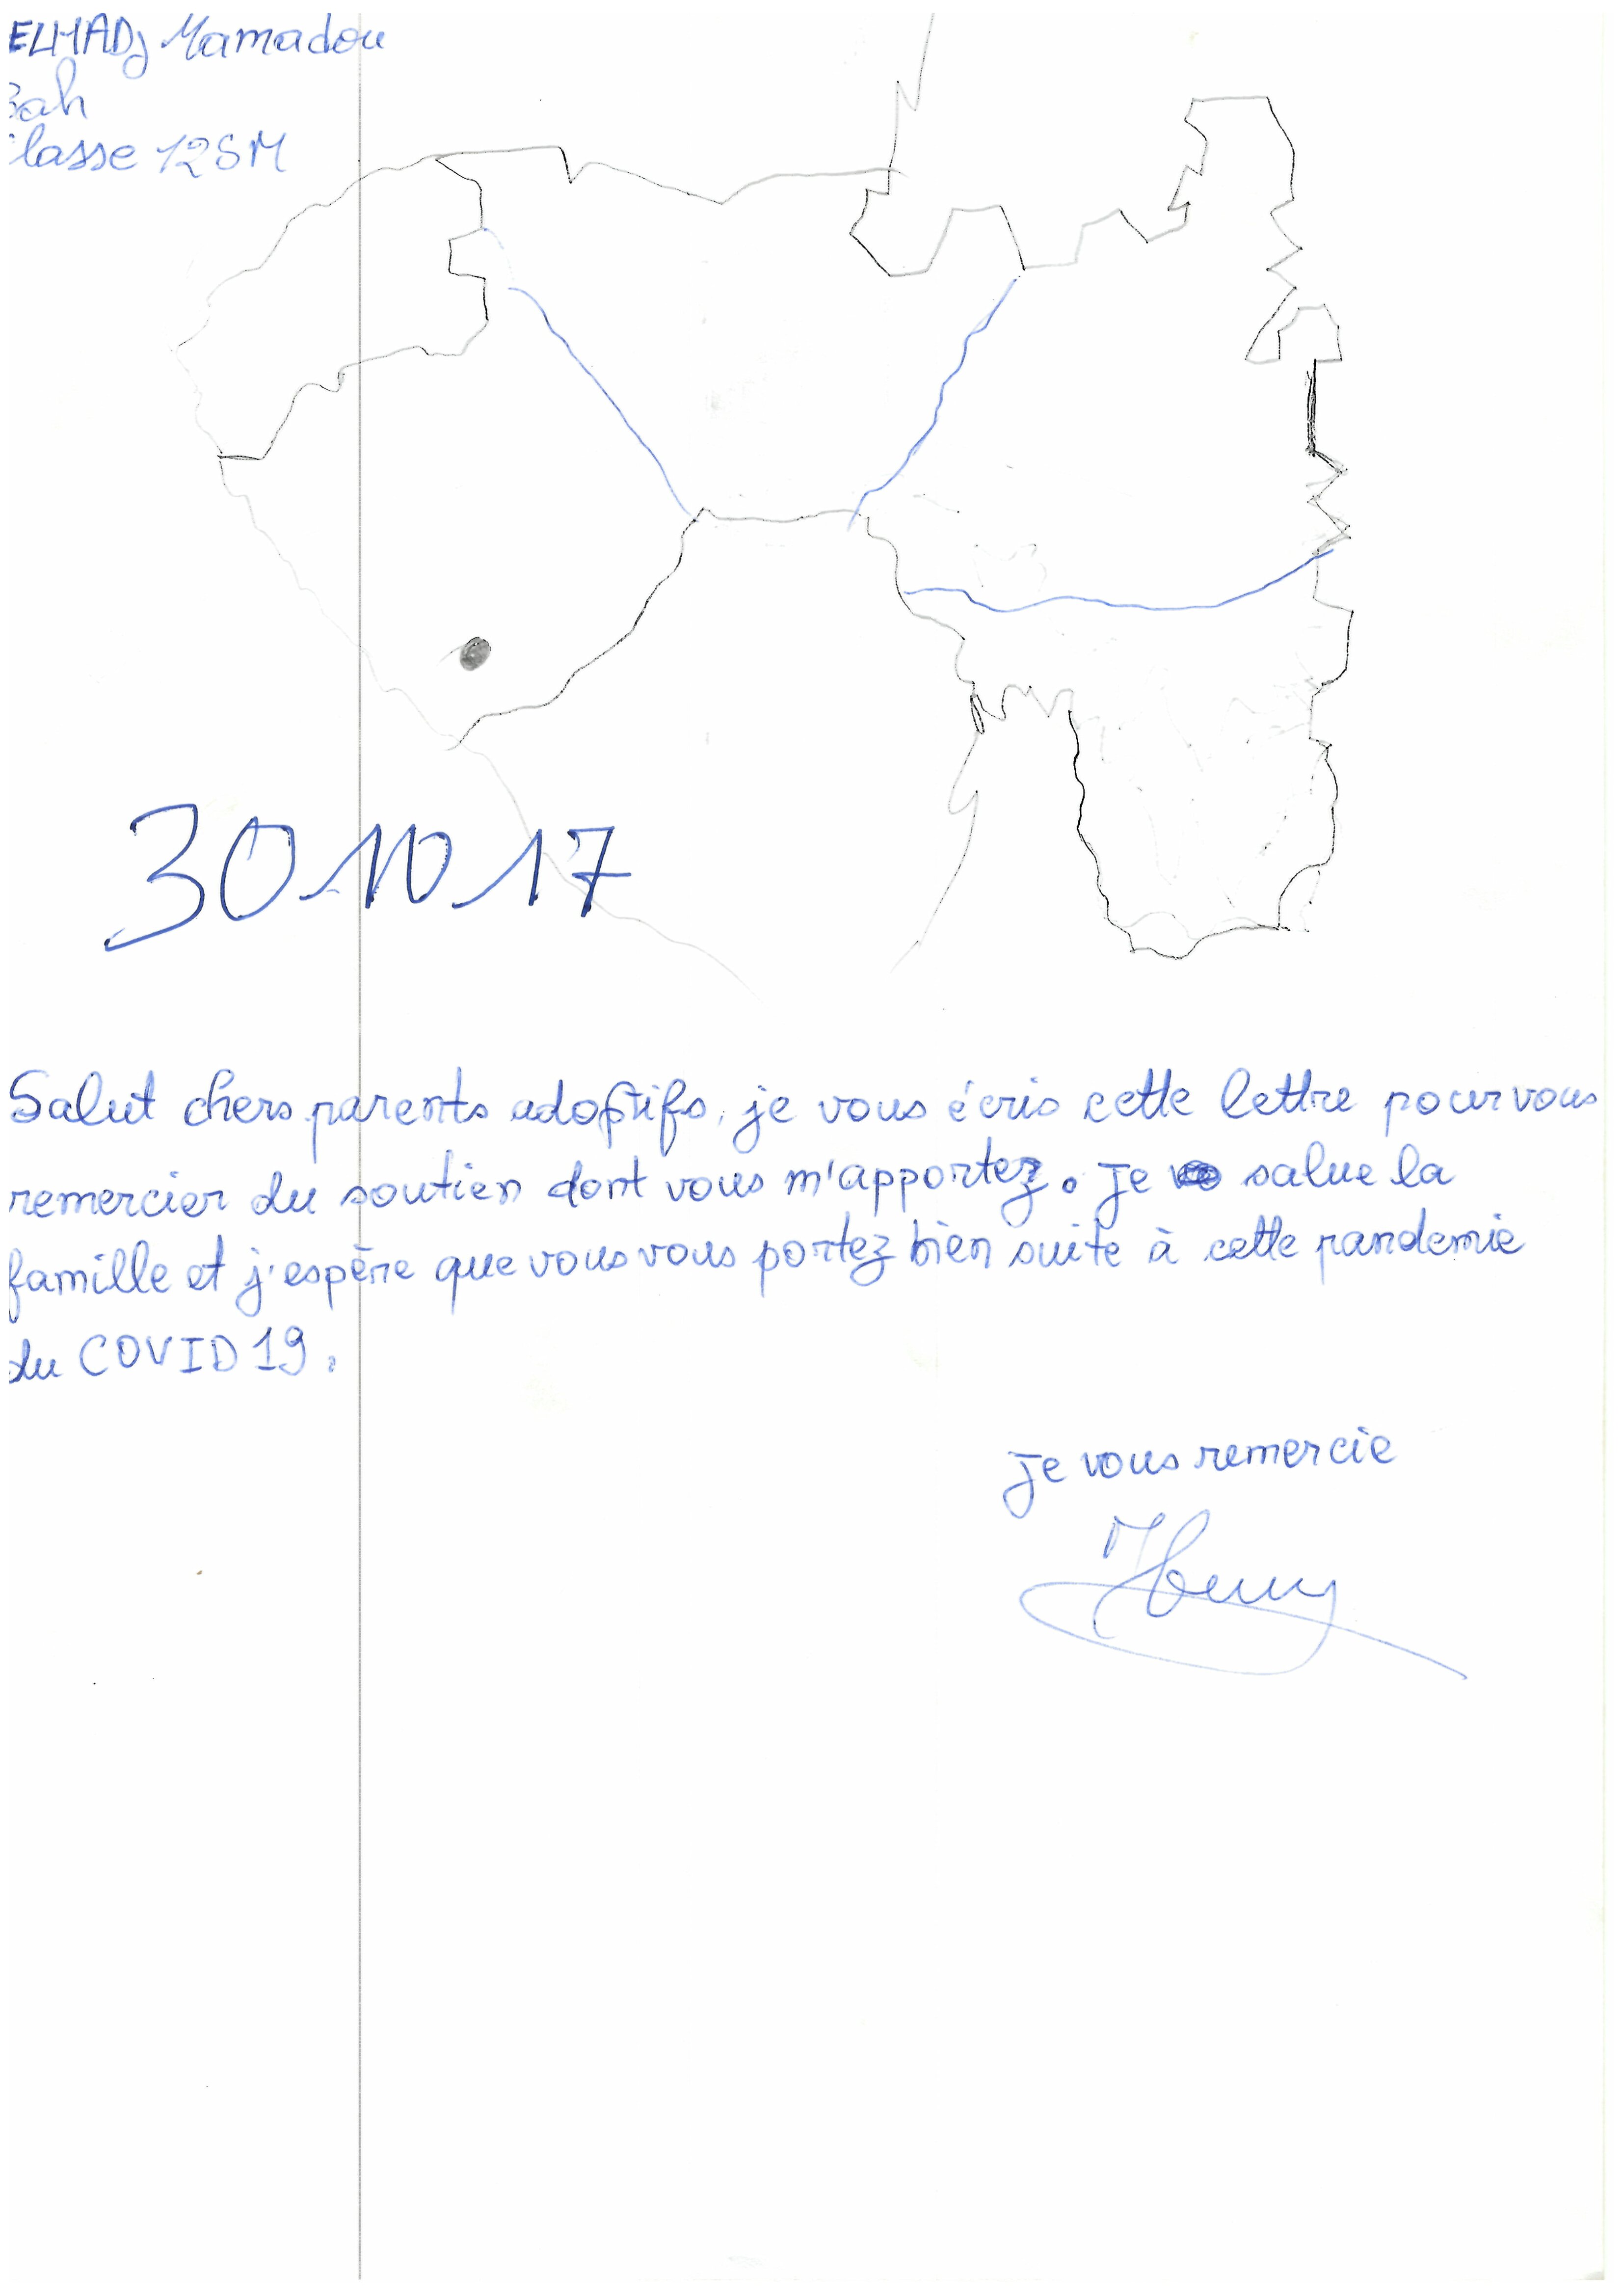 ELHADj Mamadou
Bah
Classe 12SM
30 10 17
Salut chers parents adoptifs, je vous écris cette lettre pour vous
remercier du soutien dont vous m'apportez. Je salue la
famille et j'espère que vous vous portez bien suite à cette pandemie
du COVID 19.
Je vous remercie